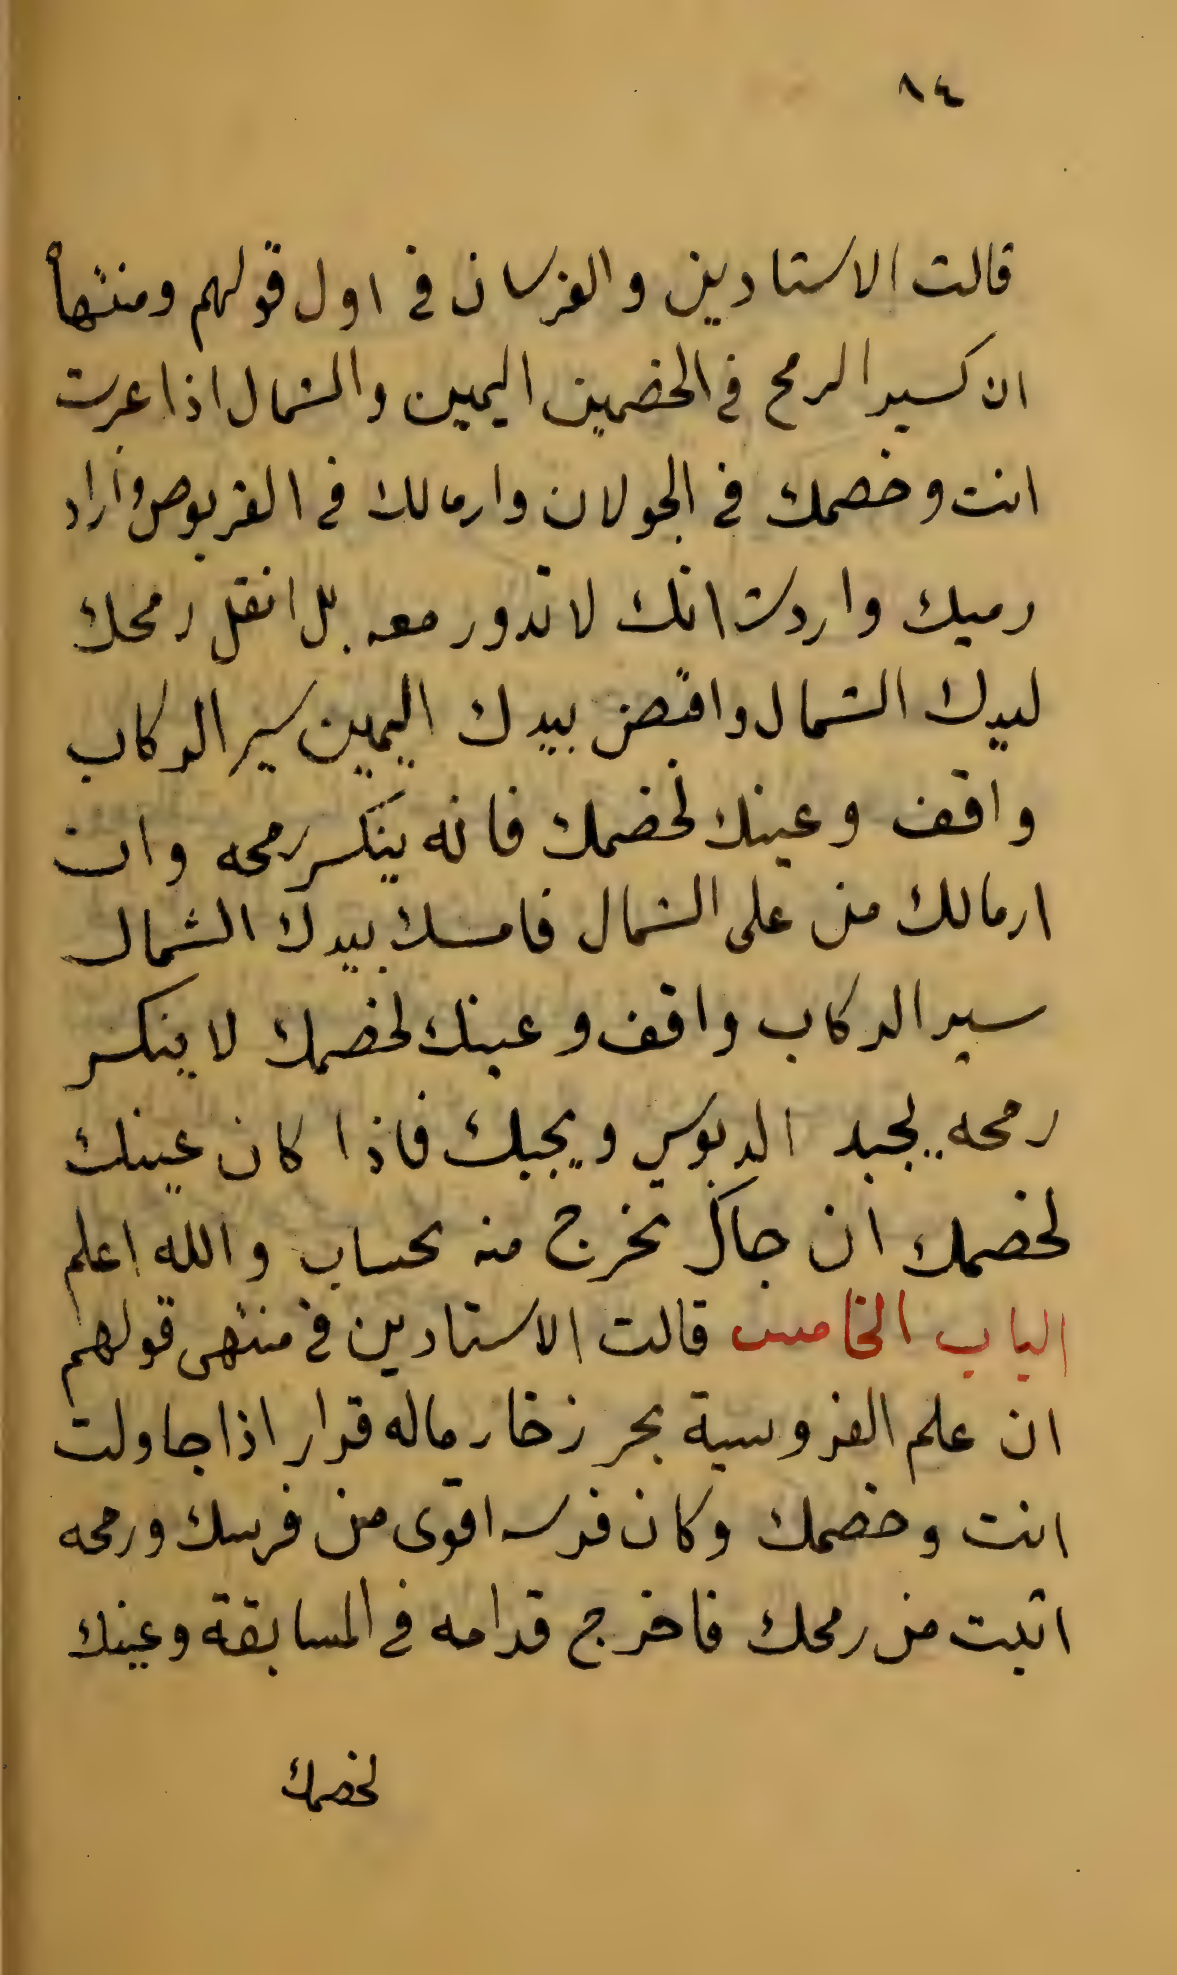 ١٤
قالت الاستادين والفرسان في اول قولهم ومنتهاه
ان كسير الرمح في الخضمين اليمين والشمال اذا عبرت
انت وخصمك في الجولان وارمالك في القربوص وأراد
رميك واردت انك لا تدور معه بل انقل رمحك
ليدك الشمال واقبض بيدك اليمين سير الركاب
واقف وعينك لخضمك فانه ينكسر رمحه وان
ارمالك من على الشمال فامسك بيدك الشمال
سير الركاب واقف وعينك لخضمك لا ينكسر
رمحه يجبد الدبوس ويجيك فاذا كان عينك
لخضمك ان جاك تخرج منه بحساب والله اعلم
الباب الخامس قالت الاستادين في منتهى قولهم
ان علم الفروسية بحر زخار ماله قرار اذا جاولت
انت وخضمك وكان فرسه اقوى من فرسك ورمحه
اثبت من رمحك فاخرج قدامه في المسابقة وعينك
لخصمك